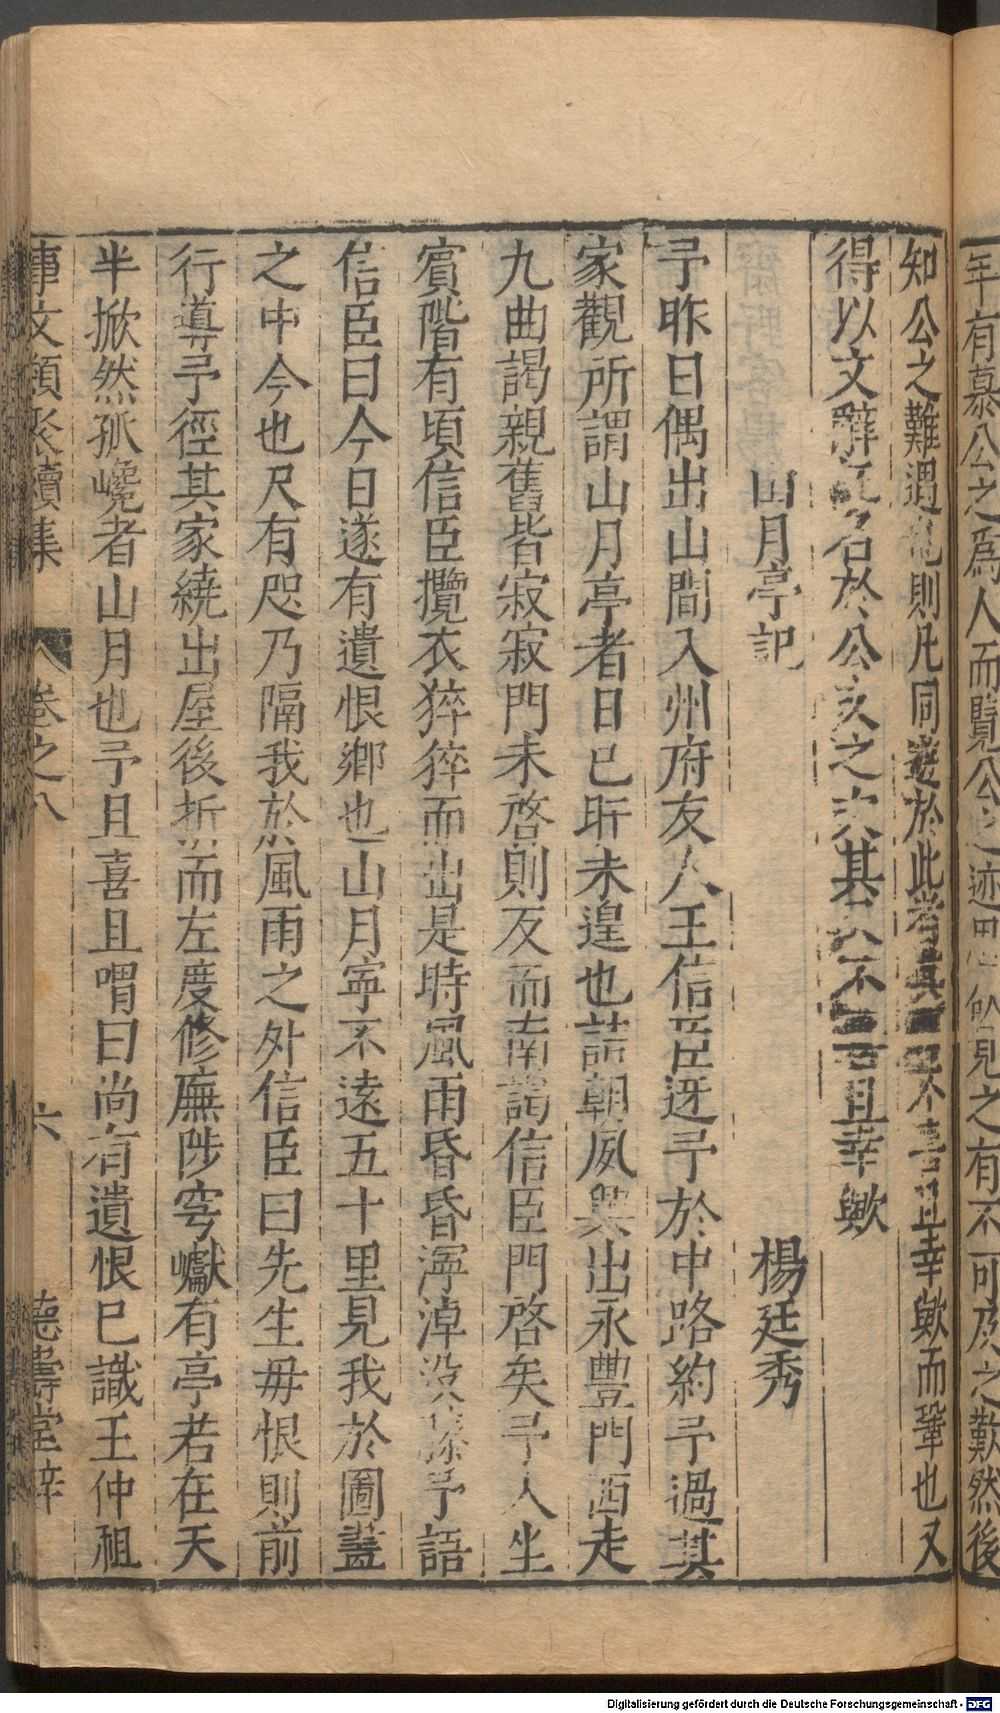 年有慕公之爲人而覽公之迹思欲見之有不可及之歎然後
知公之難遇也則凡同遊於此者其不喜且幸歟而鞏也又
得以文辭託名於公文之次其又不喜且幸歟
山月亭記 楊廷秀
予昨日偶出山間入州府友人王信臣迓予於中路約予過其
家觀所謂山月亭者日已昕未遑也詰朝夙興出永豐門西走
九曲謁親舊皆寂寂門未啓則反而南謁信臣門啓矣予入坐
賓階有頃信臣攬衣猝猝而出是時風雨昏昏濘淖没膝予語
信臣曰今日遂有遺恨鄉也山月寧不遠五十里見我於圖蓋
之中今也尺有咫乃隔我於風雨之外信臣曰先生毋恨則前
行導予徑其家繞出屋後折而左度修廡陟穹巘有亭若在天
半掀然孤巉者山月也予且喜且喟曰尚有遺恨已識王仲祖
事文類聚續集 卷之八 六 德壽堂梓
Digitalisierung gefördert durch die Deutsche Forschungsgemeinschaft - DFG